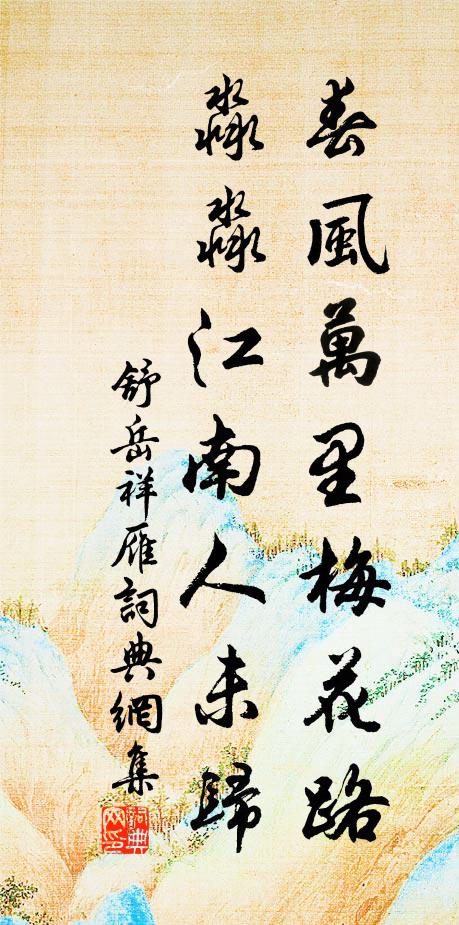 春風萬里梅花路
淼淼江南人未歸
舒岳祥雁詞典網集
詞典